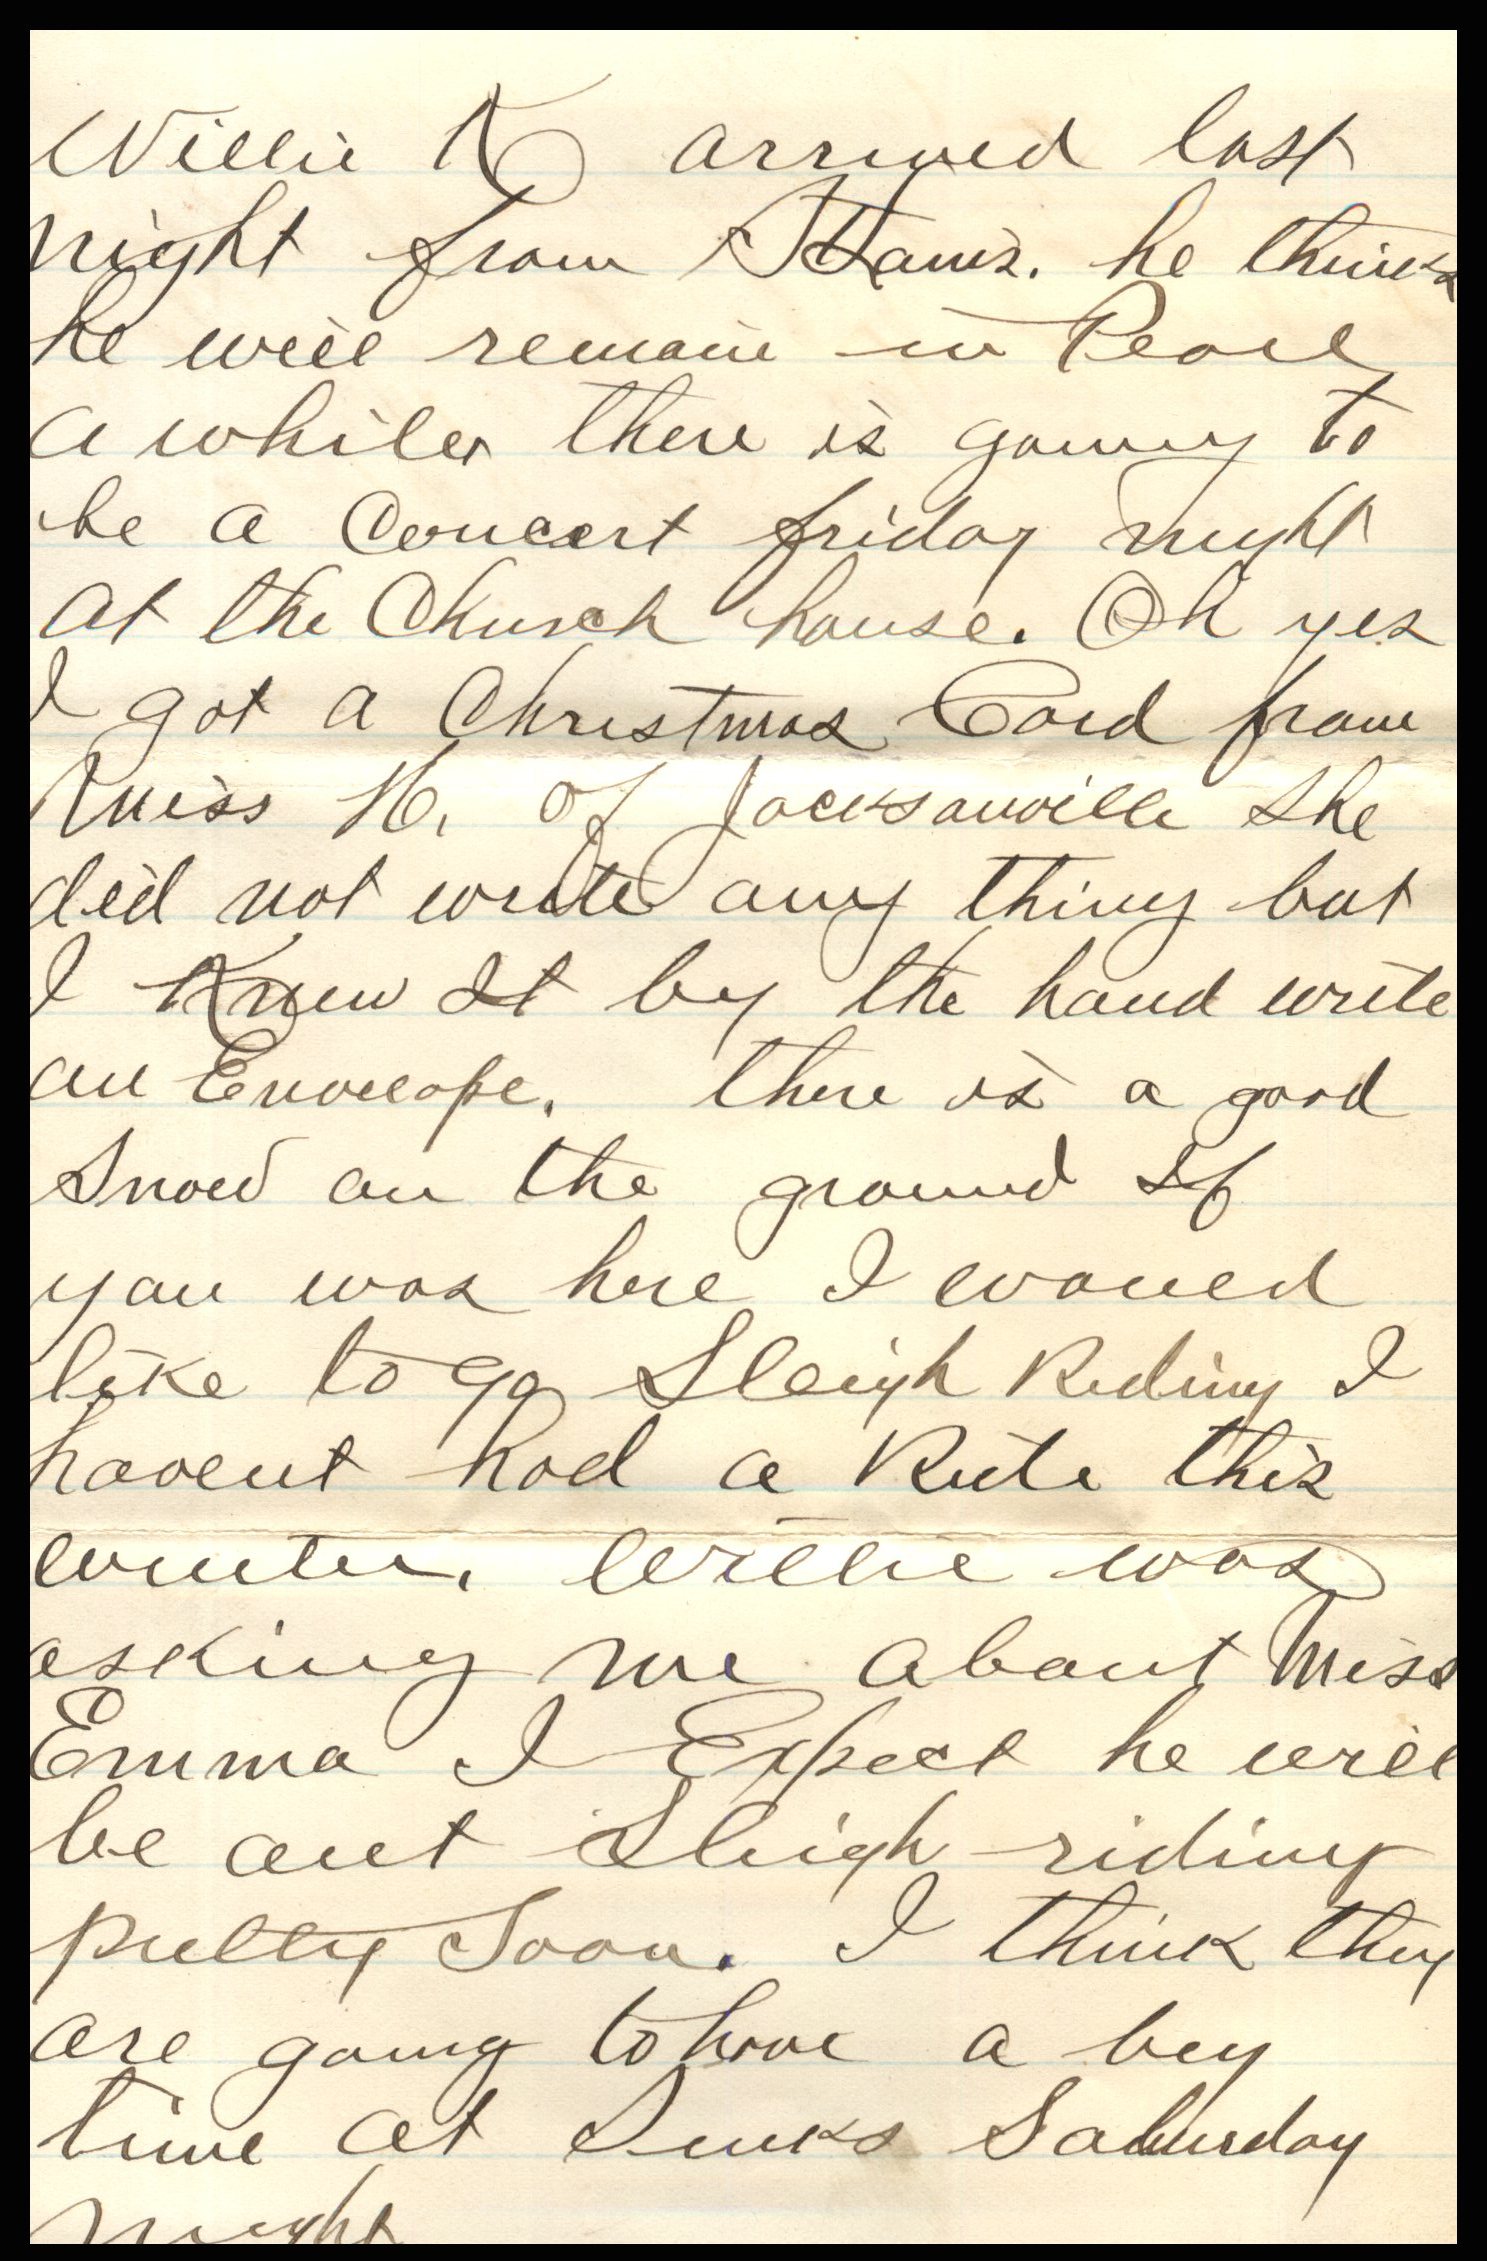 Willie K arrived last
night from he thinks
he will remain in Pearl
a while there is going to
be a Concert friday night
at the Church house. Oh yes
I got a Christmas Card from
Miss H. of Jacksonville She
did not write any thing but
I Knew It by the hand write
on Envelope. there is a good
Snow on the ground If
you was here I would
like to go Sleigh Riding I
havent had a Ride this
winter. Willie was
asking me about Miss
Emma I Expect he will
be out Sleigh riding
pretty Soon. I think they
are going to have a big
time at Saturday
night